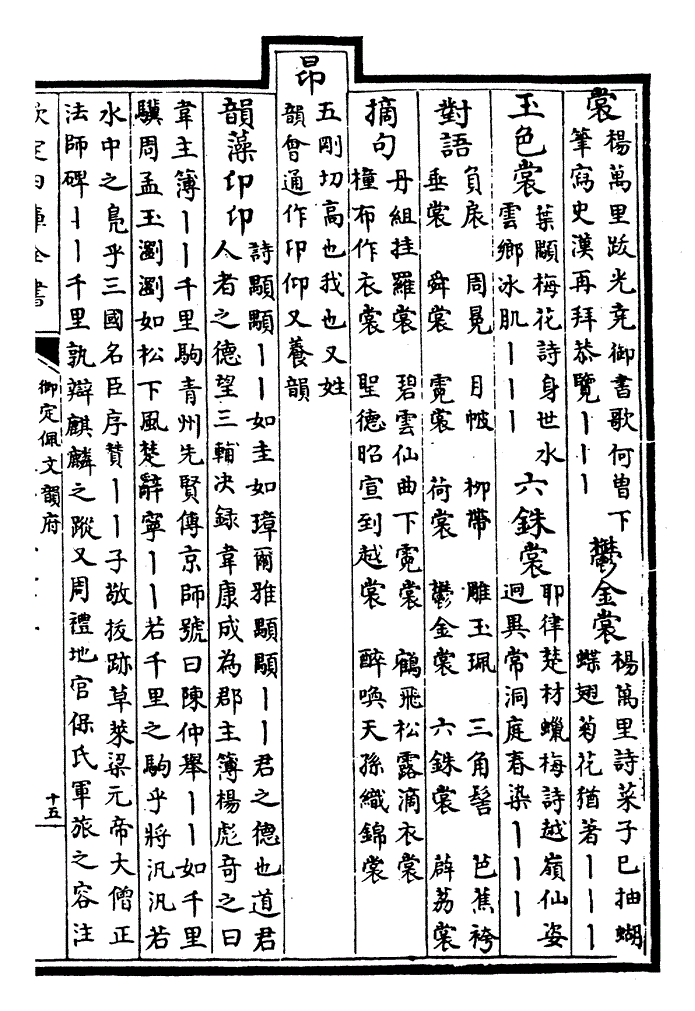 裳
楊萬里跋光堯御書歌何曽下
筆寫史漢再拜恭覽丨丨丨
鬱金裳
楊萬里詩菜子已抽蝴
蝶翅菊花猶著丨丨丨
玉色裳
葉顒梅花詩身世水
雲鄉冰肌丨丨丨
六銖裳
耶律楚材蠟梅詩越嶺仙姿
迥異常洞庭春染丨丨丨
對語
負扆 周冕 月帔 柳帶 雕玉珮 三角髻 芭蕉袴
垂裳 舜裳 霓裳 荷裳 鬱金裳 六銖裳 薜荔裳
摘句
丹組挂羅裳 碧雲仙曲下霓裳 鶴飛松露滴衣裳
橦布作衣裳 聖德昭宣到越裳 醉喚天孫織錦裳
昂
五剛切高也我也又姓
韻會通作卬仰又養韻
韻藻
卬卬
詩顒顒丨丨如圭如璋爾雅顒顒丨丨君之德也道君
人者之德望三輔決錄韋康成為郡主簿楊彪奇之曰
韋主簿丨丨千里駒青州先賢傳京師號曰陳仲舉丨丨如千里
驥周孟玉瀏瀏如松下風楚辭寧丨丨若千里之駒乎將汎汎若
水中之鳧乎三國名臣序贊丨丨子敬拔跡草萊梁元帝大僧正
法師碑丨丨千里孰辯麒麟之蹤又周禮地官保氏軍旅之容注
欽定四庫全書
御定佩文韻府
十五